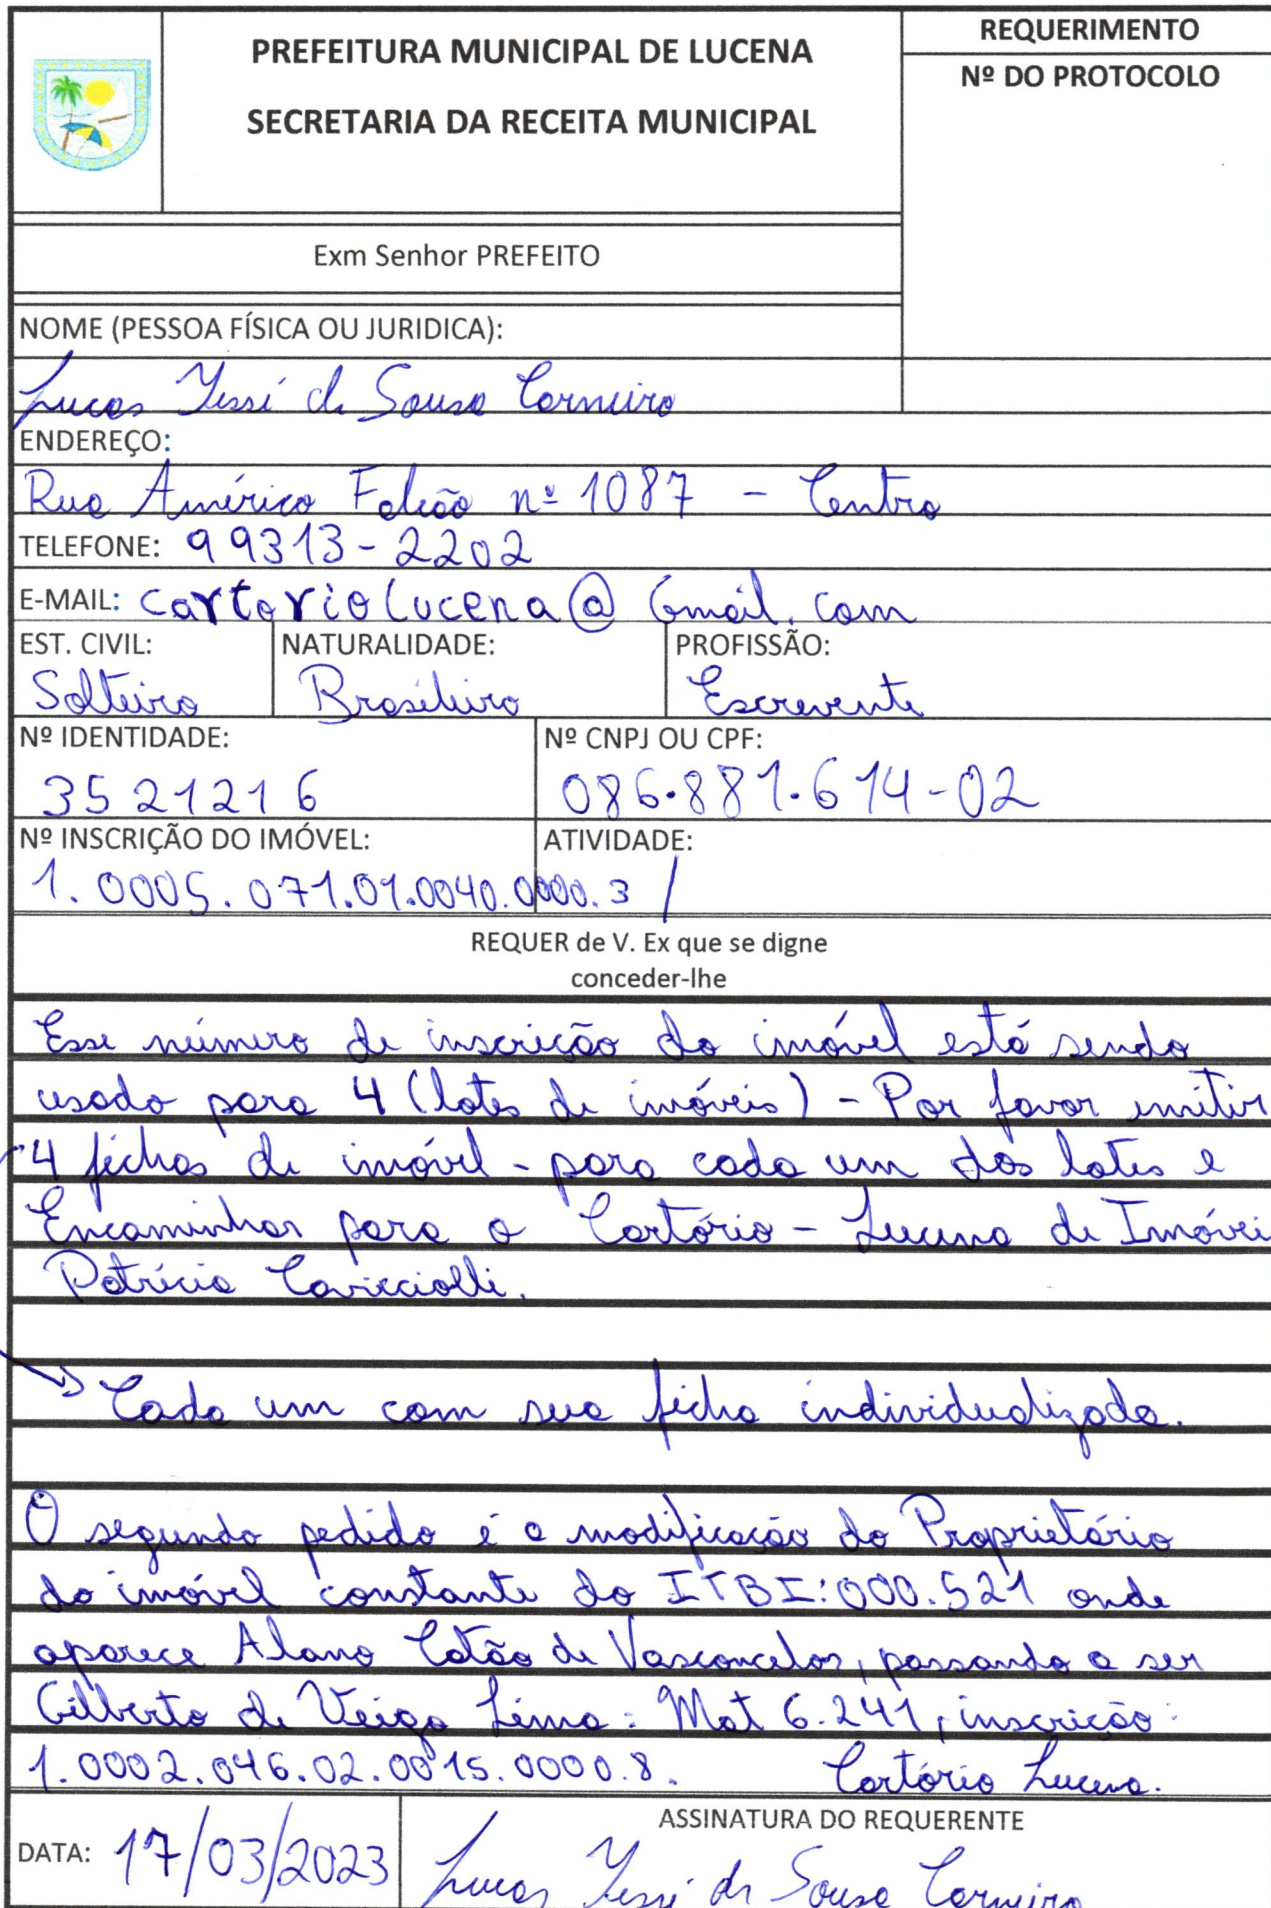 PREFEITURA MUNICIPAL DE LUCENA
SECRETARIA DA RECEITA MUNICIPAL
REQUERIMENTO
Nº DO PROTOCOLO
Exm Senhor PREFEITO
NOME (PESSOA FÍSICA OU JURIDICA):
Lucas Yessé de Sousa Carneiro
ENDEREÇO:
Rua Américo Falcão nº 1087 - Centro
TELEFONE: 99313-2202
E-MAIL: cartoriolucena@Gmail.com
EST. CIVIL: NATURALIDADE: PROFISSÃO:
Solteiro Brasileiro Escrevente
Nº IDENTIDADE: Nº CNPJ OU CPF:
3521216 086.881.614-02
Nº INSCRIÇÃO DO IMÓVEL: ATIVIDADE:
1.0005.071.01.0040.0000.3 /
REQUER de V. Ex que se digne
conceder-lhe
Esse número de inscrição do imóvel está sendo
usado para 4 (lotes de imóveis) - Por favor emitir
4 fichas de imóvel - para cada um dos lotes e
Encaminhar para o Cartório - Lucena de Imóvei
Patrícia Cavicciolli.
→ Cada um com sua ficha individualizada.
O segundo pedido é a modificação do Proprietário
do imóvel constante do ITBI: 000.521 onde
aparece Alano Catão de Vasconcelos, passando a ser
Gilberto de Veiga Lima: Mat 6.241, inscrição:
1.0002.046.02.0015.0000.8. Cartório Lucena.
DATA: 17/03/2023
ASSINATURA DO REQUERENTE
Lucas Yessé de Sousa Carneiro